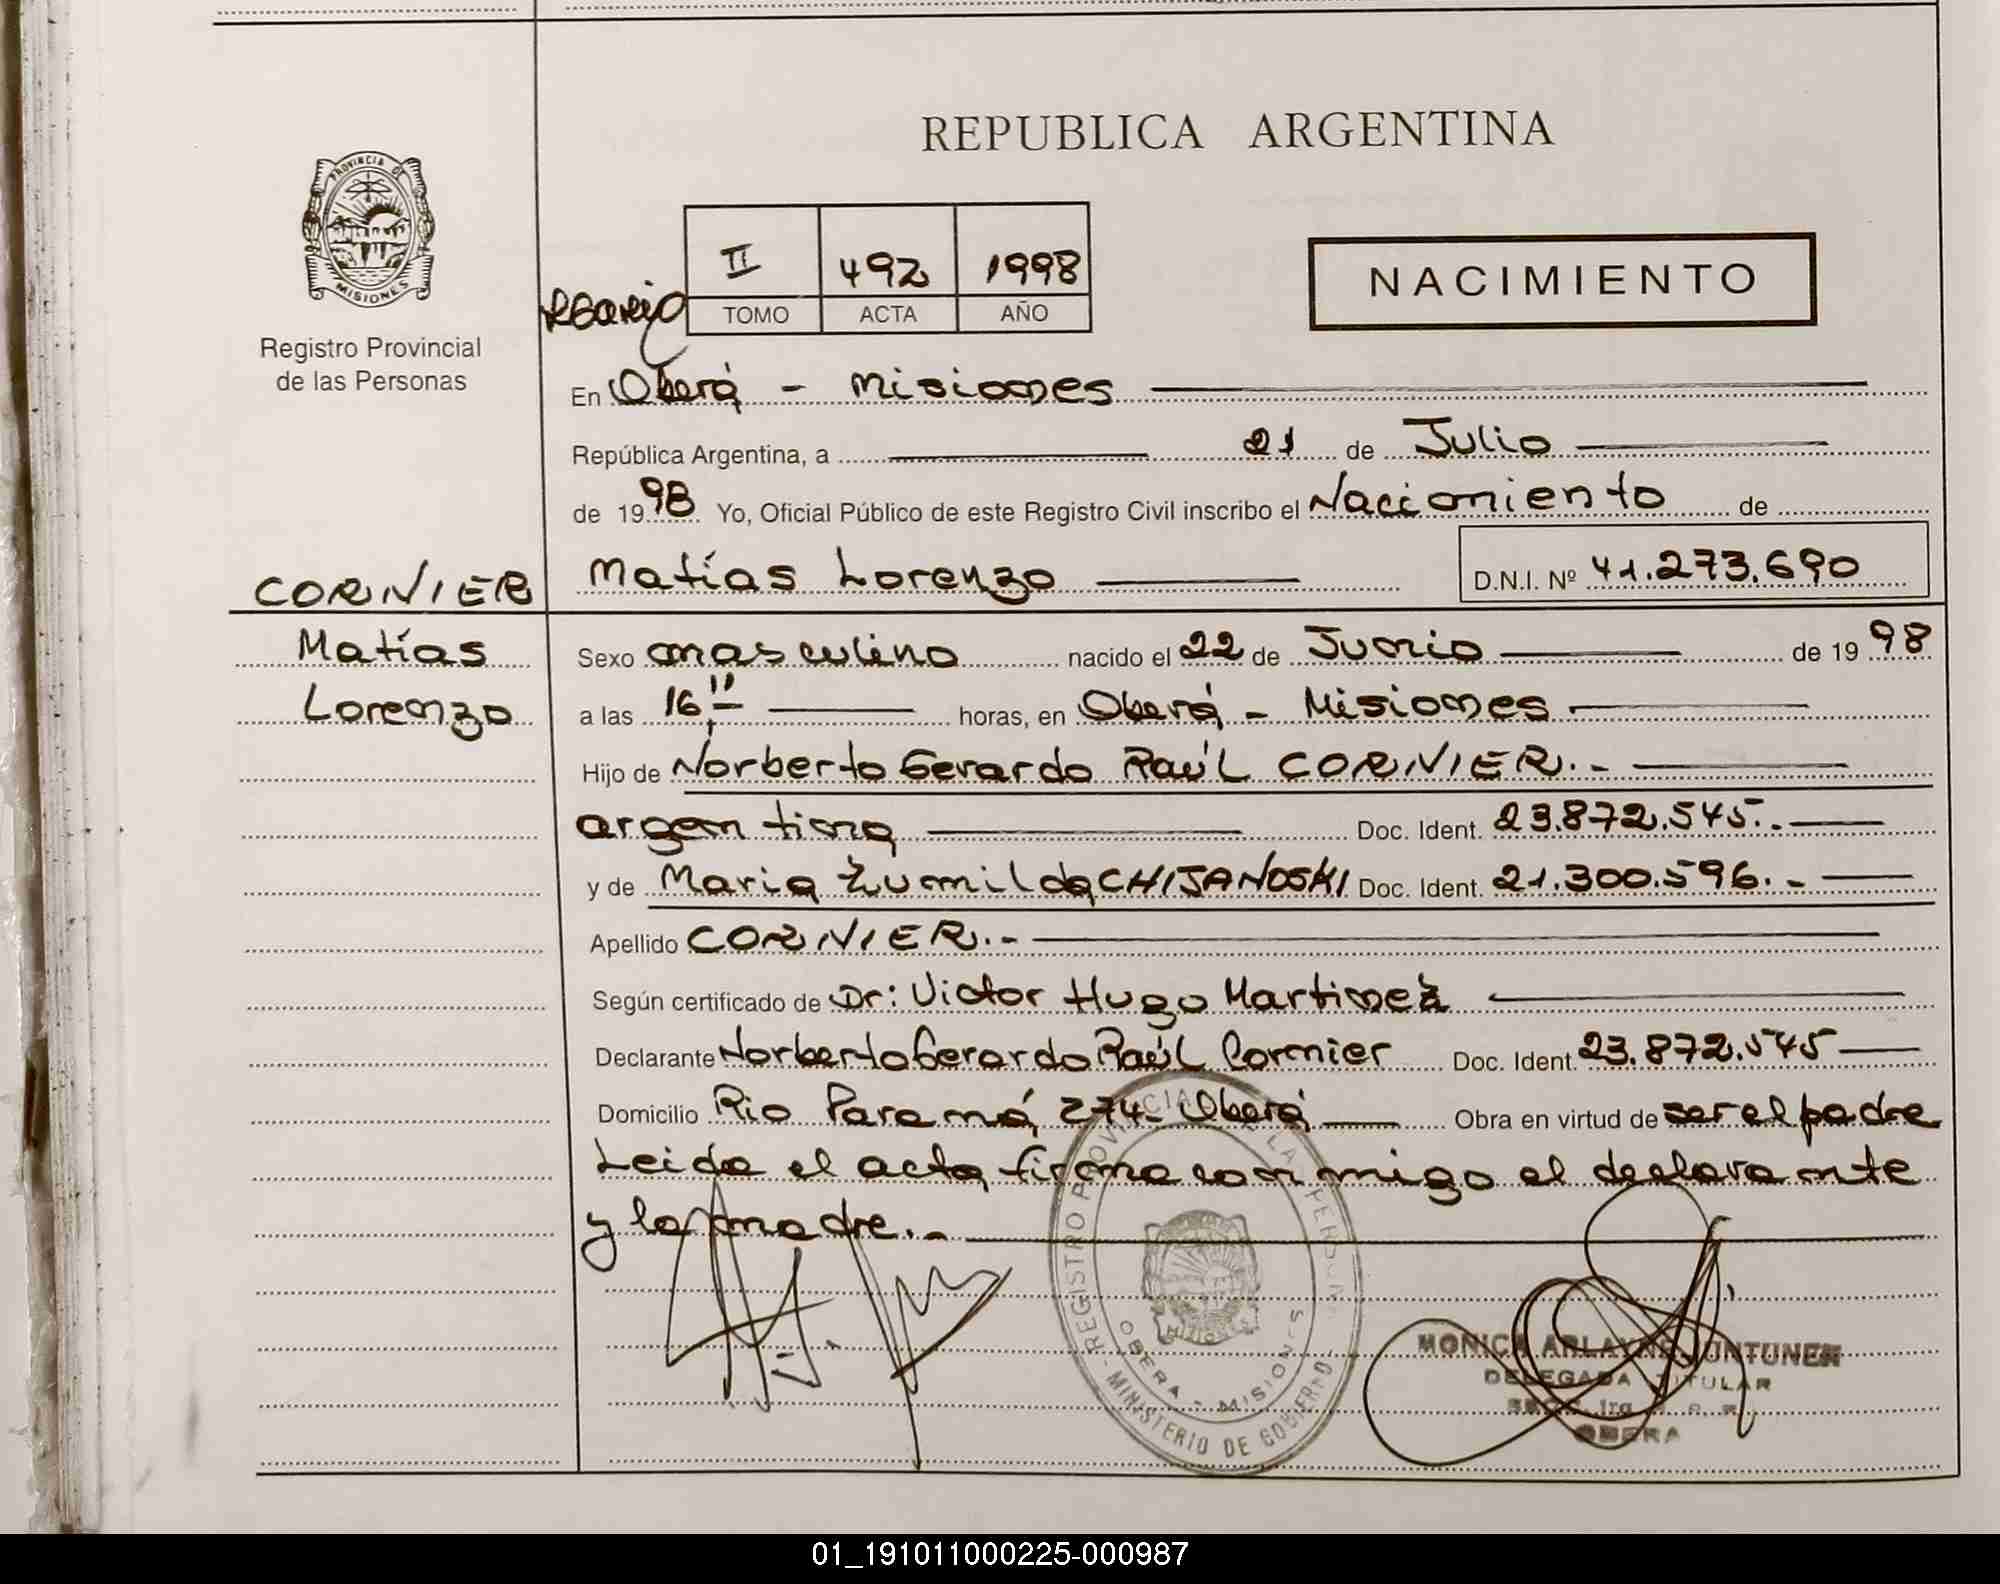 REPUBLICA ARGENTINA
PROVINCIA DE
MISIONES
Registro Provincial
de las Personas
II 492 1998
TOMO ACTA AÑO
NACIMIENTO
En Oberá - Misiones
República Argentina, a 21 de Julio
de 1998 Yo, Oficial Público de este Registro Civil inscribo el Nacimiento de
CORNIER Matías Lorenzo D.N.I. Nº 41.273.690
Matías Sexo masculino nacido el 22 de Junio de 1998
Lorenzo a las 16,11 horas, en Oberá - Misiones
Hijo de Norberto Gerardo Raúl CORNIER.-
argentina Doc. Ident. 23.872.545.-
y de Maria Zumilda CHIJANOSKI Doc. Ident. 21.300.596.-
Apellido CORNIER.-
Según certificado de Dr: Victor Hugo Martinez
Declarante Norberto Gerardo Raúl Cornier Doc. Ident. 23.872.545
Domicilio Rio Paraná 274- Oberá Obra en virtud de ser el padre
Leida el acta firma conmigo el declarante
y la madre.-
REGISTRO PROVINCIAL DE LAS PERSONAS
MISIONES
OBERA - MISIONES
MINISTERIO DE GOBIERNO
MONICA
DELEGADA TITULAR
OBERA
01_191011000225-000987